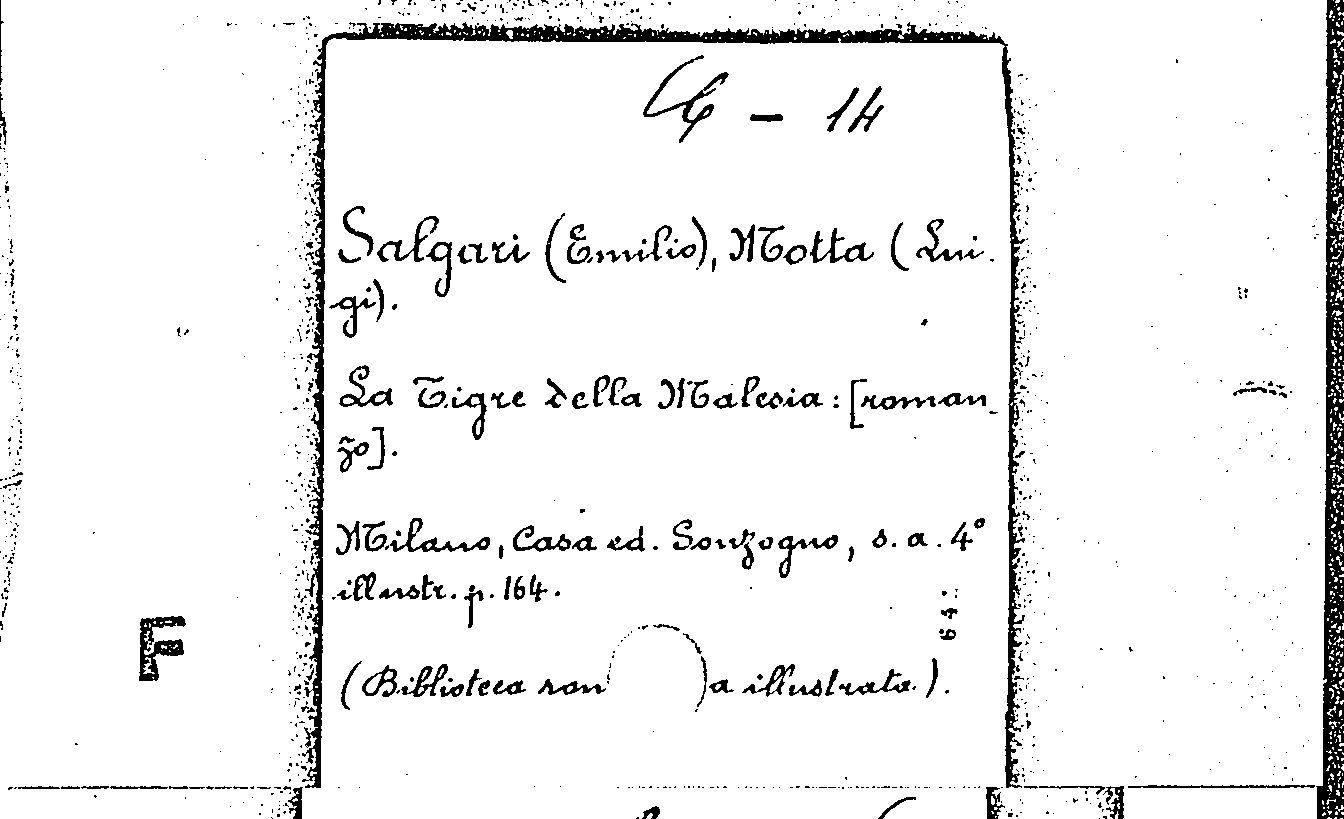 – 14
Salgari (Emilio), Motta (Lui-
gi).
La Tigre della Malesia: [roman-
zo].
Milano, Casa ed. Sonzogno, s. a. 4°
illustr. p. 164.
(Biblioteca rom a illustrata).
F